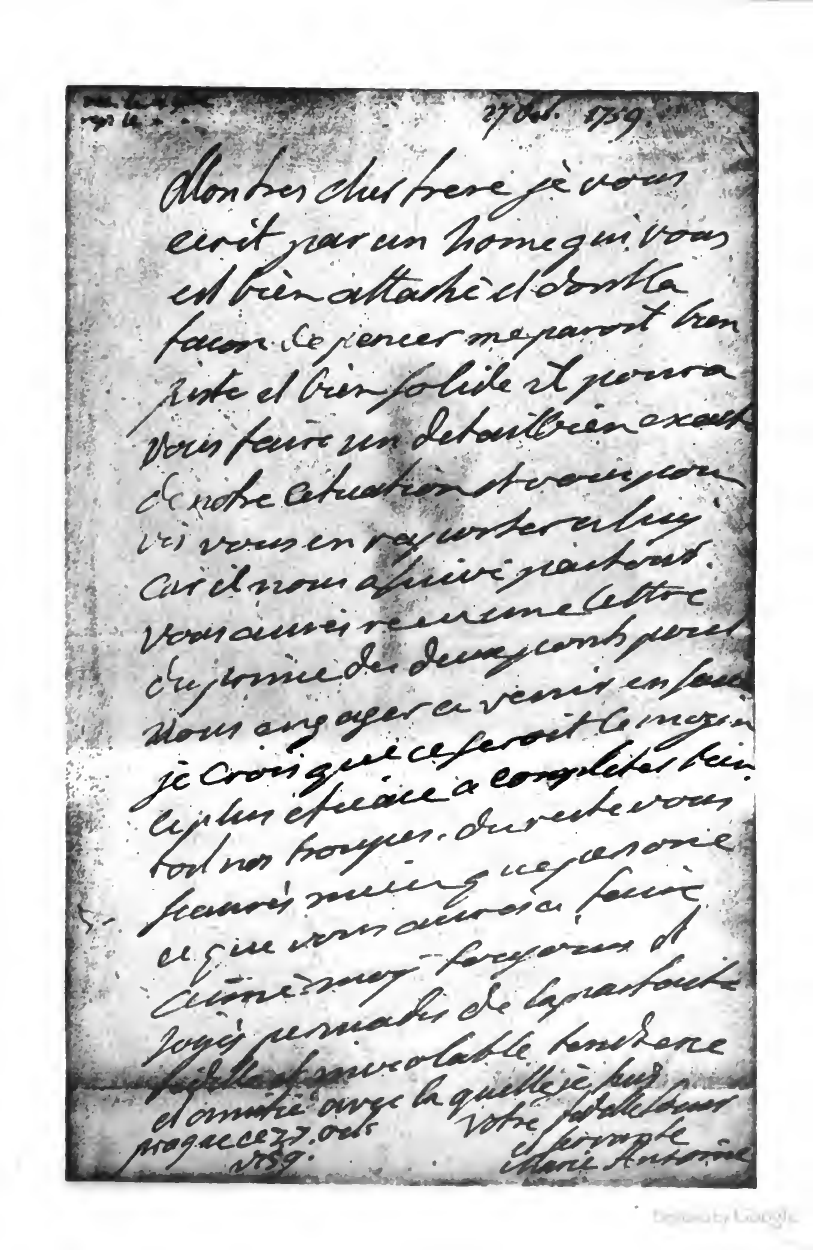 27 Oct. 1759.
Mon tres cher frere je vous
ecrit par un home qui vous
est bien attaché et dont la
facon de pencer me paroit bien
juste et bien solide il poura
vous faire un detail bien exacte
de notre cituation et vous pou
vés vous en raporter a luy
car il nous a suivi partout.
vous aurés recu une lettre
du prince des deux ponts pour
vous engager a venir en
je crois que ce seroit le moyen
le plus eficace a completer bien
tod nos troupes. du reste vous
scaurés mieux que personne
ce que vous aurés a faire
aimé moy toujours et
soyés persuadés de la parfaite
fidelle et inviolable tendrene
et amitié avec la quelle je suis
votre fidelle soeur
et servante
Marie Antoine
prague ce 27. oct.
1759.
Digitized by Google